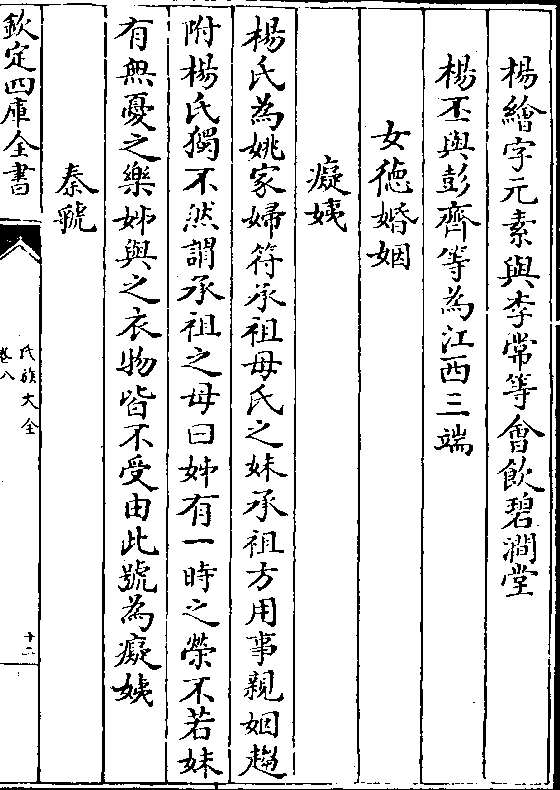 楊繪字元素與李常等會飲碧澗堂
楊丕與彭齊等為江西三端
女徳婚姻
癡姨
楊氏為姚家婦符承祖母氏之妹承祖方用事親姻趨
附楊氏獨不然謂承祖之母曰姊有一時之榮不若妹
有無憂之樂姊與之衣物皆不受由此號為癡姨
秦虢
欽定四庫全書
氏族大全
卷八
十二